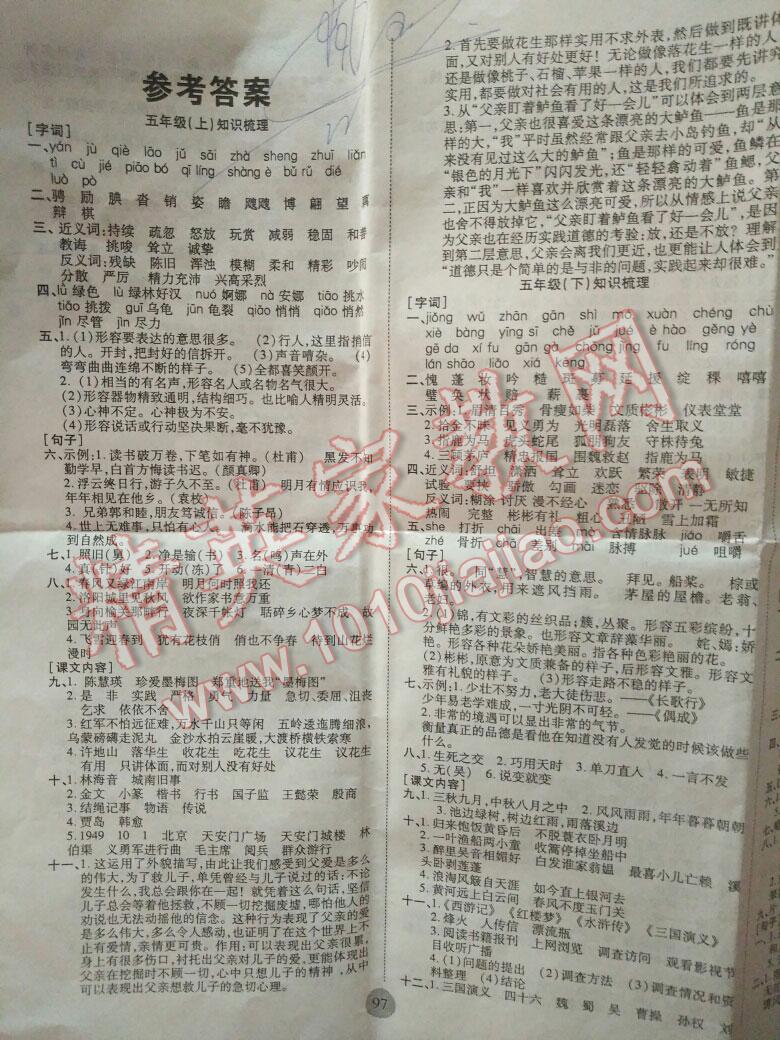 参考答案
五年级(上)知识梳理
[字词]
一、yán jù qiè lāo jǔ sāi zhà sheng zhuī liǎn
tì cù jié piāo bó qǐ líng shàng è bǔ rǔ dié
luò pò
二、骋 励 腆 沓 销 姿 瞻 飕飕 博 翩 望
辩 棋
三、近义词:持续 疏忽 怒放 玩赏 减弱 稳固 和善
教诲 挑唆 耸立 诚挚
反义词:残缺 陈旧 浑浊 模糊 柔和 精彩
分散 严厉 精力充沛 兴高采烈
四、lǜ 绿色 lù 绿林好汉 nuó 婀娜 nà 安娜 tiāo 挑水
tiǎo 挑拨 guī 乌龟 jūn 龟裂 qiāo 悄悄 qiǎo 悄然
jǐn 尽管 jìn 尽力
五、1.(1)形容要表达的意思很多。 (2)行人,这里指捎信
的人。开封,把封好的信拆开。 (3)声音嘈杂。 (4)
弯弯曲曲连绵不断的样子。 (5)全都喜笑颜开。
2.(1)相当的有名声,形容名人或名物名气很大。
(2)形容器物精致通明,结构细巧。也比喻人精明灵活。
(3)心神不定。心神极为不安。
(4)形容说话或行动坚决果断,毫不犹豫。
[句子]
六、示例:1.读书破万卷,下笔如有神。(杜甫) 黑发不知
勤学早,白首方悔读书迟。(颜真卿)
2.浮云终日行,游子久不至。(杜甫) 明月有情应识我,
年年相见在他乡。(袁枚)
3.兄弟敦和睦,朋友笃信诚。(陈子昂)
4.世上无难事,只怕有心人。 滴水能把石穿透,万事功
到自然成。
七、1.照旧(舅) 2.净是输(书) 3.名(鸣)声在外
4.真(针)好 5.开动(冻)了 6.一清(青)二白
八、1.春风又绿江南岸 明月何时照我还
2.洛阳城里见秋风 欲作家书意万重
3.身向榆关那畔行 夜深千帐灯 聒碎乡心梦不成 故
园无此声
4.飞雪迎春到 犹有花枝俏 俏也不争春 待到山花烂
漫时
[课文内容]
九、1.陈慧瑛 珍爱墨梅图 郑重地送我“墨梅图”
2.是 非 实践 严格 勇气 力量 急切、委屈、沮丧
乞求 依依不舍
3.红军不怕远征难,万水千山只等闲 五岭逶迤腾细浪,
乌蒙磅礴走泥丸 金沙水拍云崖暖,大渡桥横铁索寒
4.许地山 落华生 收花生 吃花生 议花生 议花生
有用 只讲体面,而对别人没有好处
十、1.林海音 城南旧事
2.金文 小篆 楷书 行书 国子监 王懿荣 殷商
3.结绳记事 物语 传说
4.贾岛 韩愈
5.1949 10 1 北京 天安门广场 天安门城楼 林
伯渠 义勇军进行曲 毛主席 阅兵 群众游行
十一、1.这运用了外貌描写,由此让我们感受到父爱是多么
的伟大,为了救儿子,单凭曾经与儿子说过的话:不论
发生什么,我总会跟你在一起!就凭着这么句话,坚信
儿子总会等着他拯救,不顾一切挖掘废墟,哪怕他人的
劝说也无法动摇他的信念。这种行为表现了父亲的爱
是多么伟大,多么令人感动,也证明了在这个世界上不
止有爱情,亲情更可贵。作用:可以表现出父亲很累,
身上有很多伤口,衬托出父亲对儿子的爱,更能体现出
父亲在挖掘时不顾一切,心中只想儿子的精神,从中
可以表现出父亲想救儿子的急切心理。
2.首先要做花生那样实用不求外表,然后做到既讲体
面,又对别人有好处更好!无论做像落花生一样的人
还是做像桃子、石榴、苹果一样的人,我们都要先讲究
实用,都要做对社会有用的人,这是我们所追求的。
3.从“父亲盯着鲈鱼看了好一会儿”可以体会到两层意
思:第一,父亲也很喜爱这条漂亮的大鲈鱼——鱼是那
样的大,“我”平时虽然经常跟父亲去小岛钓鱼,却“从
来没有见过这么大的鲈鱼”;鱼是那样的可爱,鱼鳞在
“银色的月光下”闪闪发光,还“轻轻翕动着”鱼鳃,父
亲和“我”一样喜欢并欣赏着这条漂亮的大鲈鱼。第
二,正因为大鲈鱼这么漂亮可爱,所以从情感上说父亲
也舍不得放掉它,“父亲盯着鲈鱼看了好一会儿”,是因
为父亲也在经历实践道德的考验:放,还是不放?理解
到第二层意思,父亲会离我们更近,也更能让人体会到
“道德只是个简单的是与非的问题,实践起来却很难。”
五年级(下)知识梳理
[字词]
一、jiǒng wǔ zhān gān shì mó xuàn chéng chù
xiè bàng yīng sī chě jǔ jué è hào gěng yè
gē da xí fu gān gà chóng jǐng fu líng róng
lán shāo liáo xiá kēng
二、愧 蓬 妆 吟 糙 斑 募 延 援 绽 稞 嘻嘻
璧 奂 状 赔 薪 裹
三、示例:1.眉清目秀 骨瘦如柴 文质彬彬 仪表堂堂
2.拾金不昧 见义勇为 光明磊落 舍生取义
3.指鹿为马 虎头蛇尾 狐朋狗友 守株待兔
4.三顾茅庐 精忠报国 围魏救赵 指鹿为马
四、近义词:舒坦 潇洒 耸立 欢跃 繁荣 表明 敏捷
试验 要挟 骄傲 勾画 迷恋 去除 清静
反义词:糊涂 讨厌 漫不经心 熟悉 放开 一无所知
热闹 完整 彬彬有礼 粗心 丑陋 雪上加霜
五、shé 打折 chāi 出差 mò 含情脉脉 jiáo 嚼舌
zhé 骨折 chā 差别 mài 脉搏 jué 咀嚼
[句子]
六、1.很 同“慧”,智慧的意思。 拜见。船桨。 棕或
草编的外衣,用来遮风挡雨。 茅屋的屋檐。老翁、
老妇。
2.(1)锦,有文彩的丝织品;簇,丛聚。形容五彩缤纷,十
分鲜艳多彩的景象。也形容文章辞藻华丽。 姹、嫣:娇
艳。形容各种花朵娇艳美丽。指各种色彩艳丽的花。
(2)彬彬,原意为文质兼备的样子,后形容文雅。形容文
雅有礼貌的样子。 (3)形容走路不稳的样子。
七、示例:1.少壮不努力,老大徒伤悲。——《长歌行》
少年易老学难成,一寸光阴不可轻。——《偶成》
2.非常的境遇可以显出非常的气节。
衡量真正的品德是看他在知道没有人发觉的时候该做些
什么。
八、1.生死之交 2.巧用天时 3.单刀直入 4.一言不发
5.无(吴) 6.说变就变
[课文内容]
九、1.三秋九月,中秋八月之中 2.风风雨雨,年年暮暮朝朝
3.池边绿树,树边红雨,雨落溪边
十、1.归来饱饭黄昏后 不脱蓑衣卧月明
2.一叶渔船两小童 收篙停棹坐船中
3.醉里吴音相媚好 白发谁家翁媪 最喜小儿亡赖 溪
头卧剥莲蓬
4.浪淘风簸自天涯 如今直上银河去
5.黄河远上白云间 春风不度玉门关
十一、1.《西游记》《红楼梦》《水浒传》《三国演义》
2.烽火 人传信 漂流瓶
3.阅读书籍报刊 上网浏览 调查访问 观看影视节
目收听广播
4.(1)问题的提出 (2)调查方法 (3)调查情况和资
料整理 (4)结论
十二、1.三国演义 四十六 魏 蜀 吴 曹操 孙权 刘
97
精英家教网
www.1010jiajiao.com